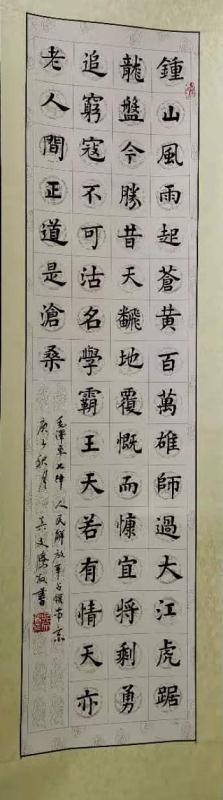 鍾山風雨起蒼黄百萬雄師過大江虎踞
龍盤今勝昔天飜地覆慨而慷宜將剩勇
追窮寇不可沽名學霸王天若有情天亦
老人間正道是滄桑
毛澤東七律 人民解放軍占領南京
庚子秋月 吴文 敬書